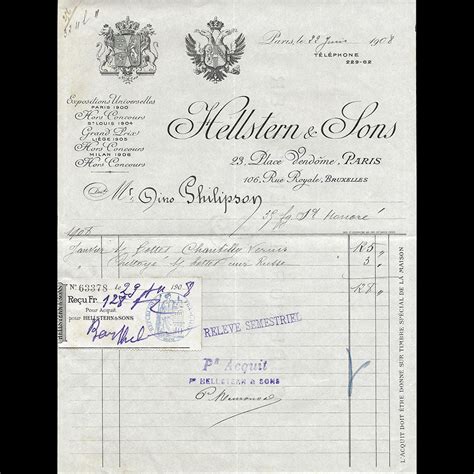 Paris, le 22 Juin 1908
TÉLÉPHONE
229-62
Expositions Universelles
PARIS 1900
Hors Concours
St LOUIS 1904
Grand Prix
LIÈGE 1905
Hors Concours
MILAN 1906
Hors Concours
Hellstern & Sons
23, Place Vendôme, PARIS
106, Rue Royale, BRUXELLES
Doit Mr Dino Philipson
59 fg St Honoré
1908
Janvier 1 Chantilly Vernis
5
Nettoyé
3
N° 63378 le 29 190
Reçu Fr. 128
Pour Acquit
pour HELLSTERN & SONS
RELEVE SEMESTRIEL
Pr Acquit
Pr HELLSTERN & SONS
L'ACQUIT DOIT ÊTRE DONNÉ SUR TIMBRE SPÉCIAL DE LA MAISON